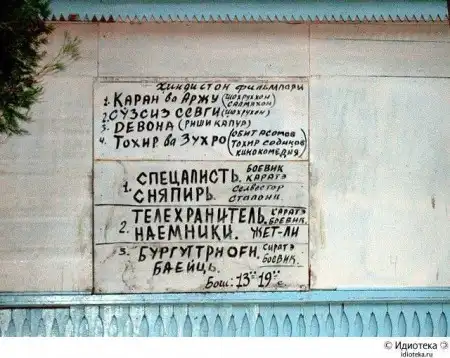 Хиндистон фильмлари
1. КАРАН ва АРЖУ (ШОХРУХХОН) (САЛМАХОН)
2. СЎЗСИЗ СЕВГИ (ШОХРУХОН)
3. DЕВОНА (РИШИ КАПУР)
4. ТОХИР ва ЗУХРО (ОБИТ АСОМОВ ТОХИР СОДИКОВ КИНОКОМЕДИЯ)
1. СПЕЦАЛИСТЬ. БОЕВИК КАРАТЭ
СНЯПИРЬ. Селвестор Сталони.
ТЕЛЕХРАНИТЕЛЬ. КАРАТЭ БОЕВИК.
2. НАЕМНИКИ. ЖЕТ-ЛИ
3. БУРГУТТРНОҒИ. СИРАТЭ БОЕВИК.
БАЕЙЦЬ.
Бош: 13 19 с.
© Идиотека Э
idioteka.ru